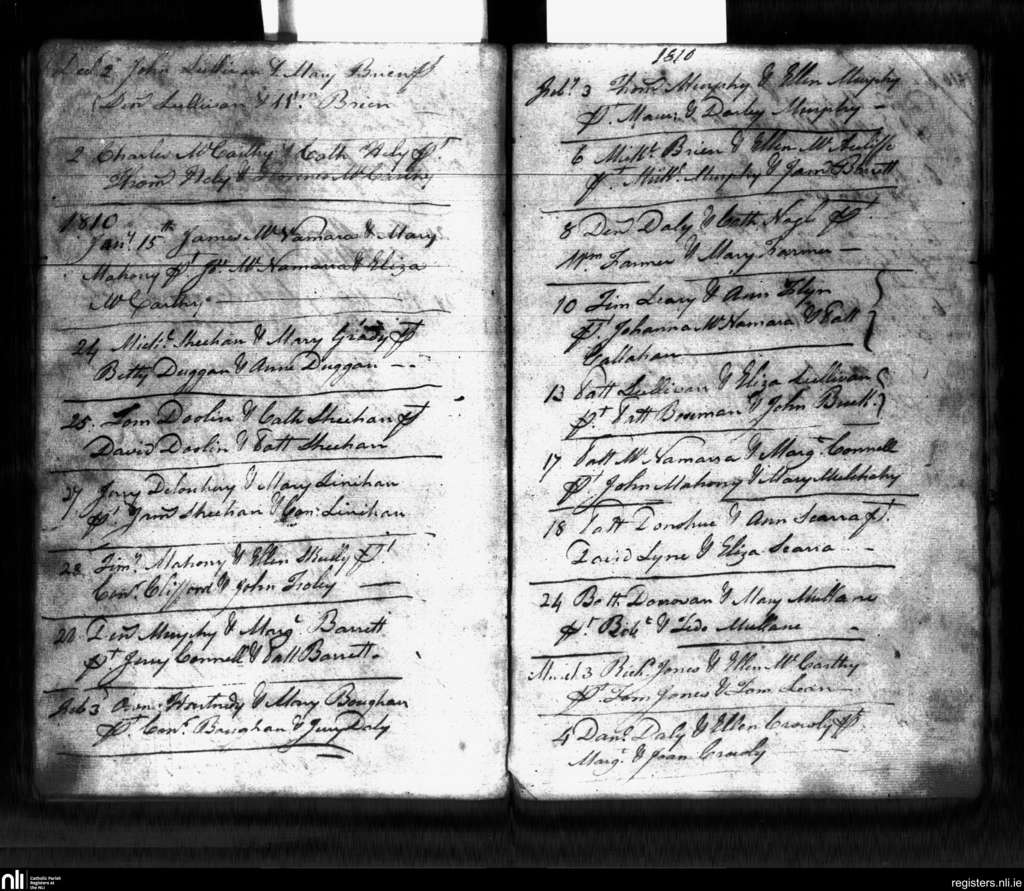 Decr 2 John Sullivan & Mary Brien pt
Denis Sullivan & Wm Brien
2 Charles McCarthy & Cath Hely pt
Thoms Hely & McCarthy
1810
Jany 15th James McNamara & Mary
Mahony pt Jas McNamara & Eliza
McCarthy
24 Michl Sheehan & Mary Grady pt
Betty Duggan & Anne Duggan
25 Tom Doolin & Cath Sheehan pt
David Doolin & Patt Sheehan
27 Jerry Delouhery & Mary Linihan
pt Jams Sheehan & Con: Linihan
28 Timy Mahony & Ellen pt
Cors Clifford & John Foley
28 Dens Murphy & Margt Barrett
pt Jerry Connell & Patt Barrett
Feb 3 Hartnedy & Mary Boughan
pt Cors Boughan & Jerry Daly
1810
Feby 3 Thoms Murphy & Ellen Murphy
pt Maurs & Darley Murphy
6 Michl Brien & Ellen McAuliffe
pt Michl Murphy & Jams Barrett
8 Dens Daly & Cath Nagle pt
Wm Farmer & Mary Farmer
10 Tim Leary & Ann Flyn
pt Johanna McNamara & Patt
Callahan
13 Patt Sullivan & Eliza Sullivan
pt Patt Bowman & John Buck
17 Patt McNamara & Margt Connell
pt John Mahony & Mary Mulchahy
18 Patt Donohue & Ann Scarra pt
David Lyne & Eliza Scarra
24 Batt Donovan & Mary Mullane
pt Robt & Mullane
March 3 Richd Jones & Ellen McCarthy
pt Tom Jones & Tom
4 Danl Daly & Ellen Crowly pt
Margt & Joan Crowly
nli
Catholic Parish
Registers at
the NLI
registers.nli.ie